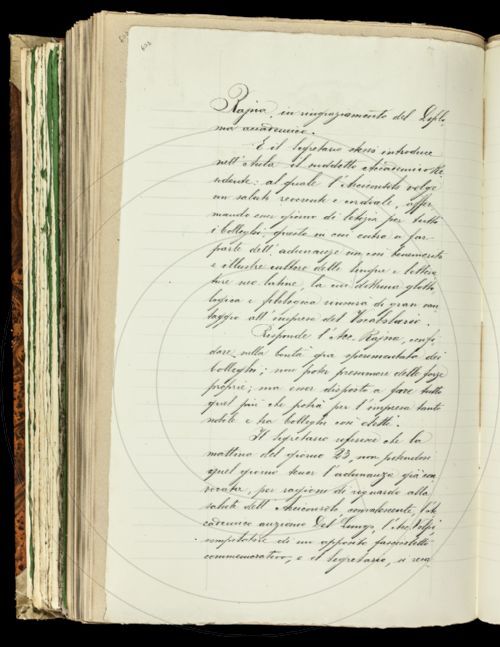 Rajna, in ringraziamento del Diplo-
ma accademico.
E il Segretario stesso introduce
nell'Aula il suddetto Accademico Re
sidente: al quale l'Arciconsolo volge
un saluto reverente e cordiale, affer
mando esser giorno di letizia per tutti
i Colleghi questo in cui entra a far
parte dell'adunanza un così benemerito
e illustre cultore delle lingue e lettera
ture neo latine, la cui dottrina glotto
logica e filologica sarà di gran van
taggio all'impresa del Vocabolario.
Risponde l'Acc. Rajna, confi
dare nella bontà già sperimentata dei
Colleghi; non poter presumere delle forze
proprie; ma esser disposto a fare tutto
quel più che potrà per l'impresa tanto
nobile e tra Colleghi così eletti.
Il Segretario riferisce che la
mattina del giorno 23, non potendosi
quel giorno tener l'adunanza già con
vocata, per ragione di riguardo alla
salute dell'Arciconsolo convalescente, l'Ac
cademico anziano Del Lungo, l'Acc. Volpi
compilatore di un apposito fascicoletto
commemorativo, e il Segretario, si reca